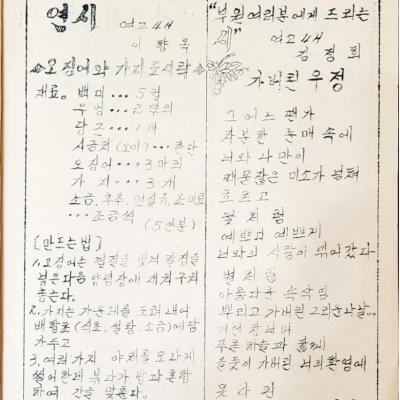 연시
여고 4H
이향옥
☆오징어와 가지
재료. 백미 ··· 5컵
우엉 ··· 2뿌리
당근 ··· 1개
시금치 (오이) ··· 한단
오징어 ··· 3마리
가지 ··· 3개
소금, 후추, 조미료
··· 조금씩
(5인분)
[만드는 법]
1. 오징어는 껍질을 벗겨 칼집을
넣은다음 양념장에 재워 구워
놓는다.
2. 가지는 가운데를 도려내어
배합초 (식초, 설탕, 소금)에 담
가주고
3. 여러가지 야채를
썰어 한데 볶다가 밥과 혼합
하여 간을 맞춘다.
"부원 여러분에게 드리는
시"
여고 4H
김정희
가버린 우정
그 어느 땐가
차분한 눈매 속에
너와 나 만이
미소가
흐르고
꽃처럼
예쁘고 예쁘게
너와의 사랑이 엮어갔다
별처럼
아름다운 속삭임
뿌리고 가버린 그리운 나날..
푸른 하늘과 함께
가버린 너의 환영에
못다한